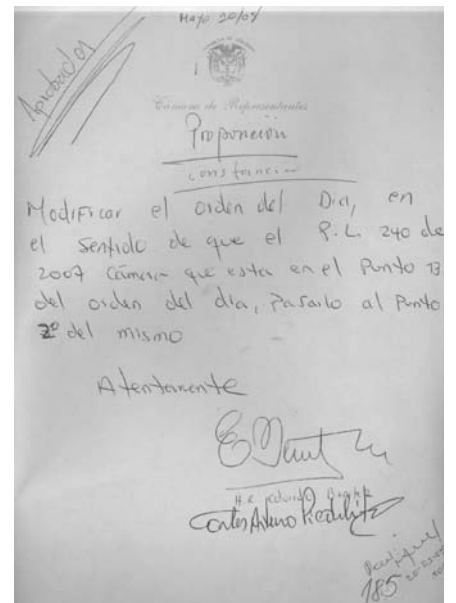 Mayo 20/09
Aprobado
Cámara de Representantes
Proposición
Constancia
Modificar el orden del Dia, en
el Sentido de que el P.L. 240 de
2007 Cámara que esta en el Punto 13
del orden del dia, Pasarlo al Punto
2º del mismo
Atentamente
H.R.
Carlos Arturo Piedrahita
185